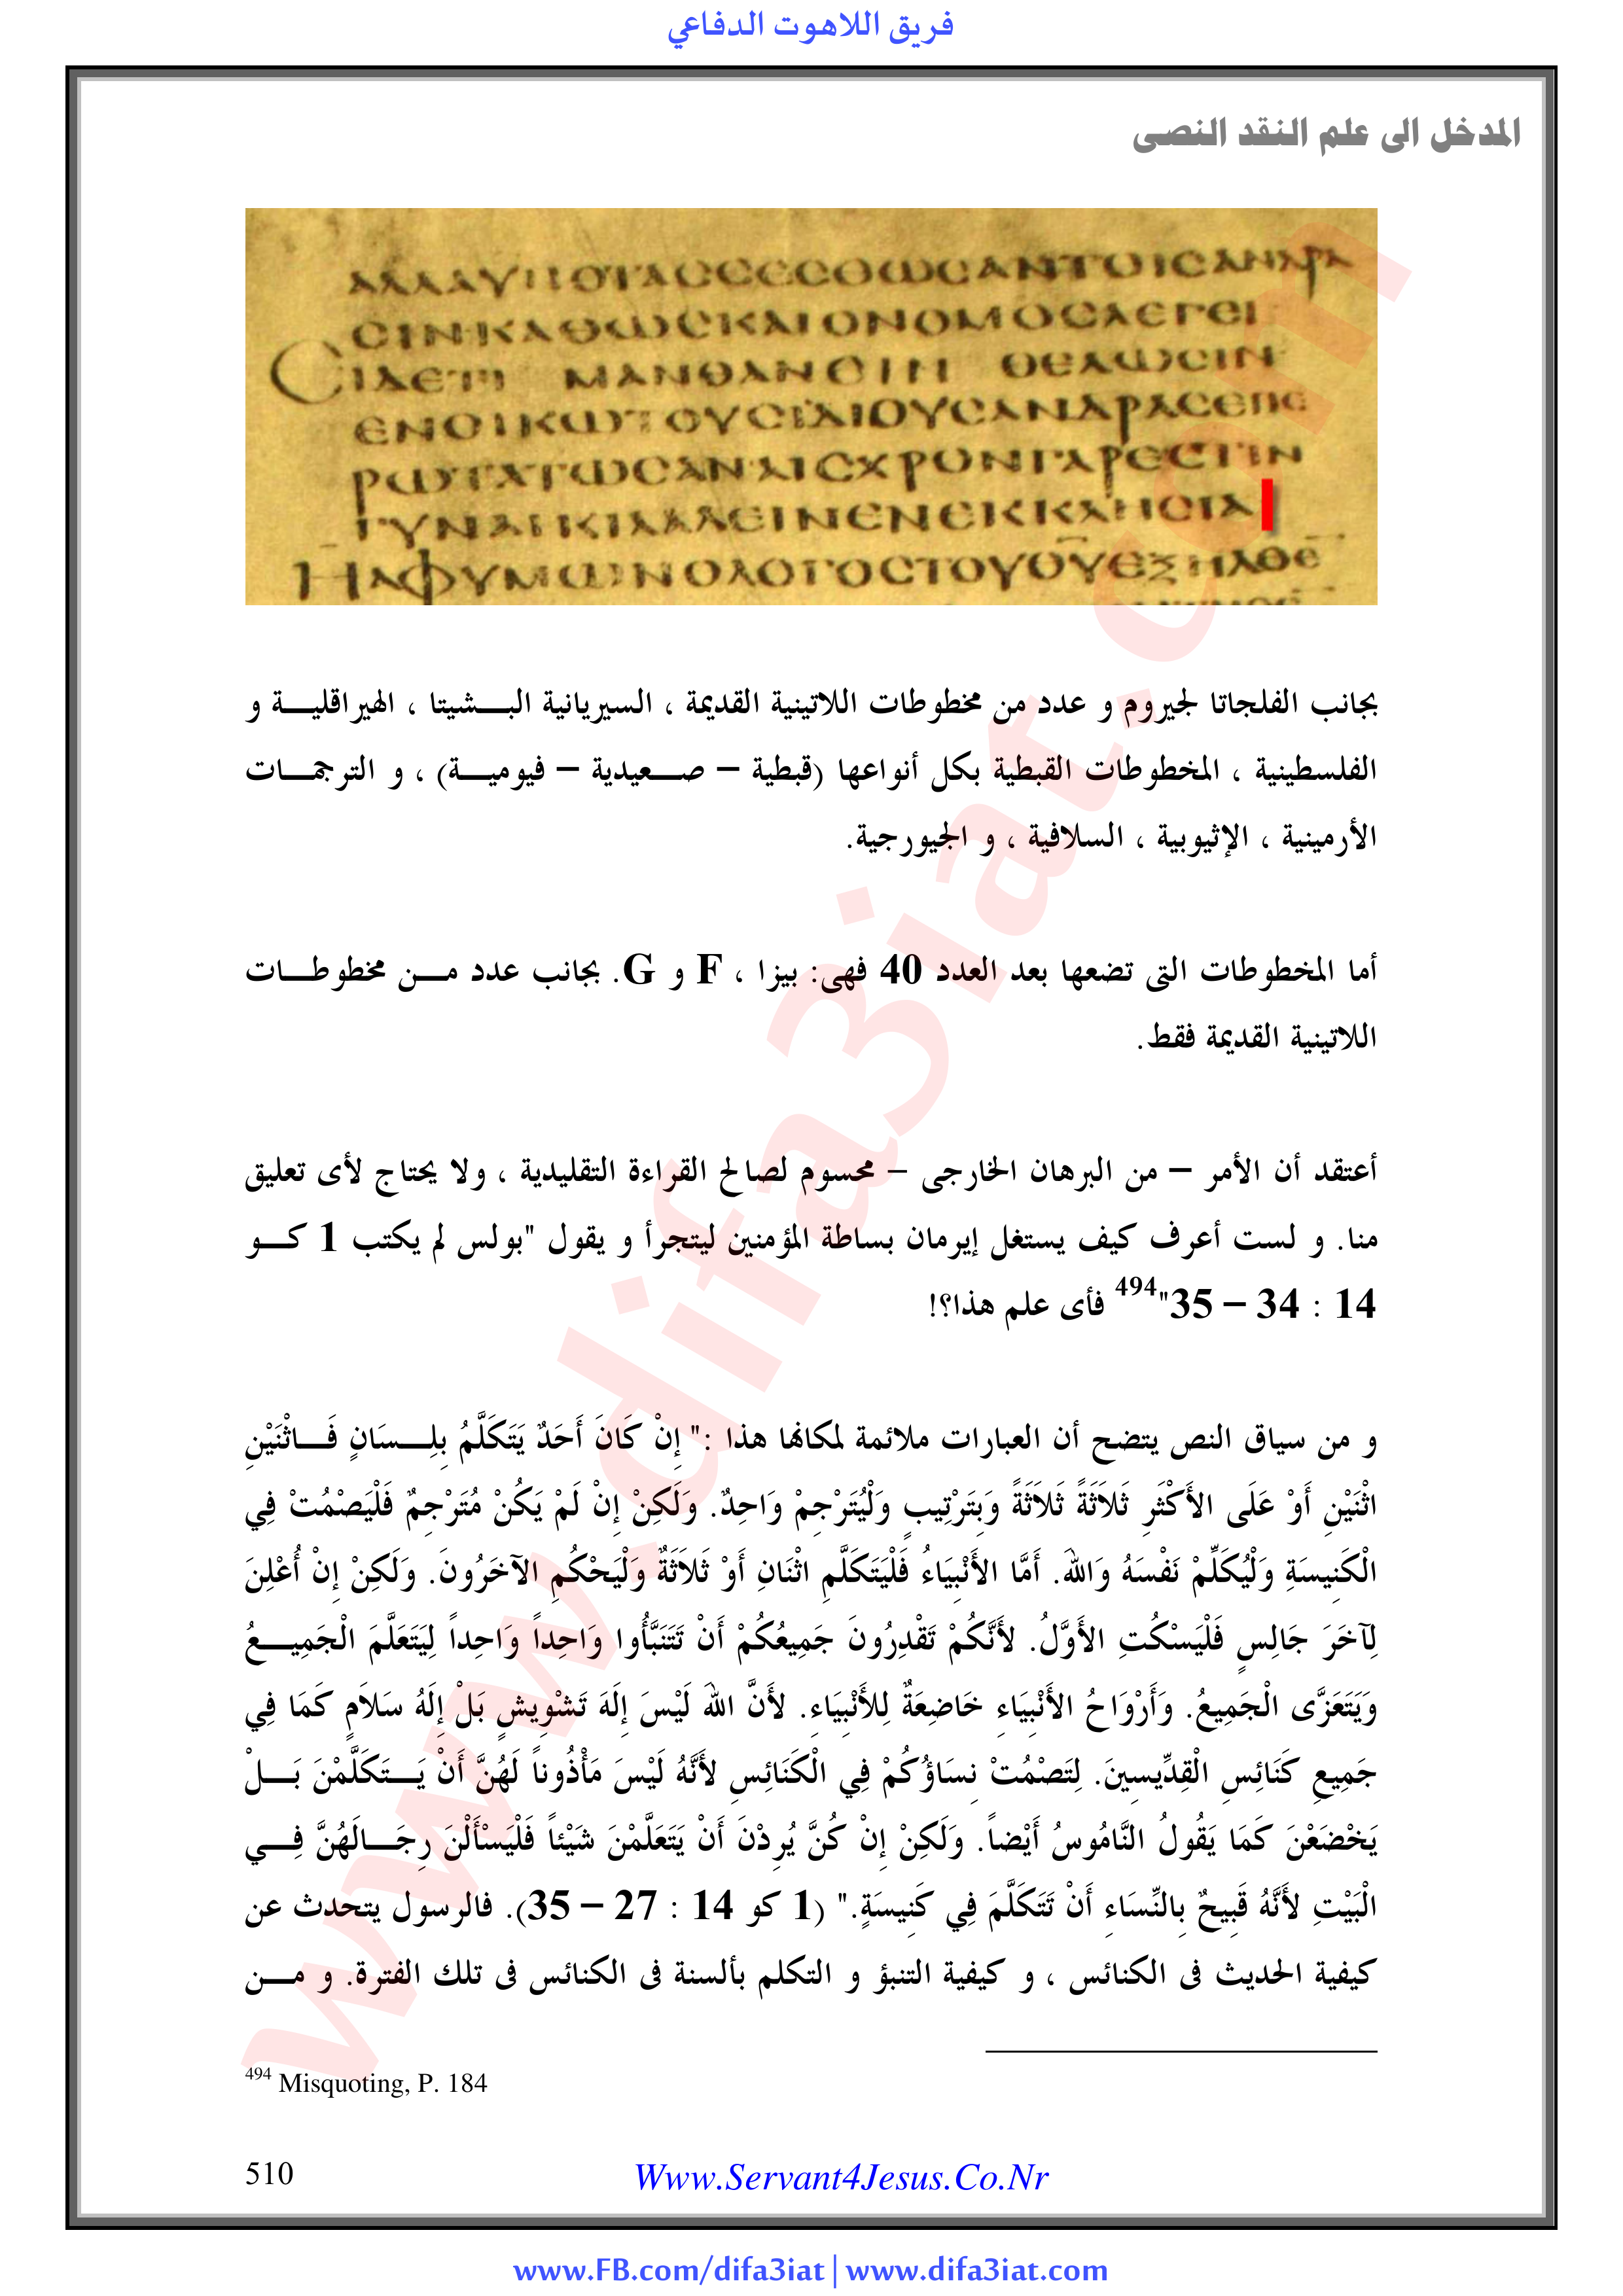 فريق اللاهوت الدفاعي
المدخل الى علم النقد النصى
ΑΛΛΑΥΠΟΤΑCCECΘΩCΑΝΤΟΙCΑΝΔΡΑ
CΙΝΚΑΘΩCΚΑΙΟΝΟΜΟCΛΕΓΕΙ
ΕΝΟΙΚΩΤΟΥCΙΔΙΟΥCΑΝΔΡΑCΕΠΕ
ΡΩΤΑΤΩCΑΝΑΙCΧΡΟΝΓΑΡΕCΤΙΝ
ΓΥΝΑΙΚΙΛΑΛΕΙΝΕΝΕΚΚΛΗCΙΑ
ΗΑΦΥΜΩΝΟΛΟΓΟCΤΟΥΘΥΕΞΗΛΘΕ
بجانب الفلجاتا لجيروم و عدد من مخطوطات اللاتينية القديمة ، السيريانية البشيتا ، الهيراقلية و
الفلسطينية ، المخطوطات القبطية بكل أنواعها (قبطية – صعيدية – فيومية) ، و الترجمات
الأرمينية ، الإثيوبية ، السلافية ، و الجيورجية.
أما المخطوطات التى تضعها بعد العدد 40 فهى: بيزا ، F و G. بجانب عدد من مخطوطات
اللاتينية القديمة فقط.
أعتقد أن الأمر – من البرهان الخارجى – محسوم لصالح القراءة التقليدية ، ولا يحتاج لأى تعليق
منا. و لست أعرف كيف يستغل إيرمان بساطة المؤمنين ليتجرأ و يقول "بولس لم يكتب 1 كو
14 : 34 – 35"494 فأى علم هذا؟!
و من سياق النص يتضح أن العبارات ملائمة لمكانها هذا :" إِنْ كَانَ أَحَدٌ يَتَكَلَّمُ بِلِسَانٍ فَاثْنَيْنِ
اثْنَيْنِ أَوْ عَلَى الأَكْثَرِ ثَلاَثَةً ثَلاَثَةً وَبِتَرْتِيبٍ وَلْيُتَرْجِمْ وَاحِدٌ. وَلَكِنْ إِنْ لَمْ يَكُنْ مُتَرْجِمٌ فَلْيَصْمُتْ فِي
الْكَنِيسَةِ وَلْيُكَلِّمْ نَفْسَهُ وَاللهَ. أَمَّا الأَنْبِيَاءُ فَلْيَتَكَلَّمِ اثْنَانِ أَوْ ثَلاَثَةٌ وَلْيَحْكُمِ الآخَرُونَ. وَلَكِنْ إِنْ أُعْلِنَ
لِآخَرَ جَالِسٍ فَلْيَسْكُتِ الأَوَّلُ. لأَنَّكُمْ تَقْدِرُونَ جَمِيعُكُمْ أَنْ تَتَنَبَّأُوا وَاحِداً وَاحِداً لِيَتَعَلَّمَ الْجَمِيعُ
وَيَتَعَزَّى الْجَمِيعُ. وَأَرْوَاحُ الأَنْبِيَاءِ خَاضِعَةٌ لِلأَنْبِيَاءِ. لأَنَّ اللهَ لَيْسَ إِلَهَ تَشْوِيشٍ بَلْ إِلَهُ سَلاَمٍ كَمَا فِي
جَمِيعِ كَنَائِسِ الْقِدِّيسِينَ. لِتَصْمُتْ نِسَاؤُكُمْ فِي الْكَنَائِسِ لأَنَّهُ لَيْسَ مَأْذُوناً لَهُنَّ أَنْ يَتَكَلَّمْنَ بَلْ
يَخْضَعْنَ كَمَا يَقُولُ النَّامُوسُ أَيْضاً. وَلَكِنْ إِنْ كُنَّ يُرِدْنَ أَنْ يَتَعَلَّمْنَ شَيْئاً فَلْيَسْأَلْنَ رِجَالَهُنَّ فِي
الْبَيْتِ لأَنَّهُ قَبِيحٌ بِالنِّسَاءِ أَنْ تَتَكَلَّمَ فِي كَنِيسَةٍ." (1 كو 14 : 27 – 35). فالرسول يتحدث عن
كيفية الحديث فى الكنائس ، و كيفية التنبؤ و التكلم بألسنة فى الكنائس فى تلك الفترة. و من
494 Misquoting, P. 184
510
Www.Servant4Jesus.Co.Nr
www.FB.com/difa3iat | www.difa3iat.com
www.difa3iat.com